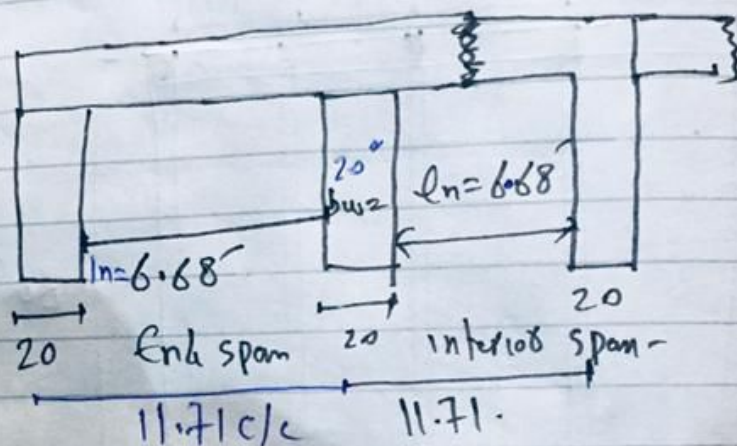 20"
bw=
ln=6.68'
ln=6.68'
20 End span 20 interior span-
20
11.71 c/c 11.71.